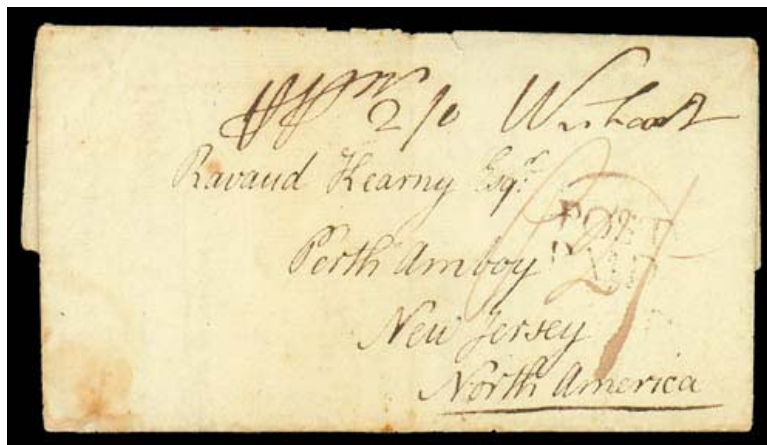 2/0
Ravaud Kearny Esqr.
Perth Amboy
New Jersey
North America